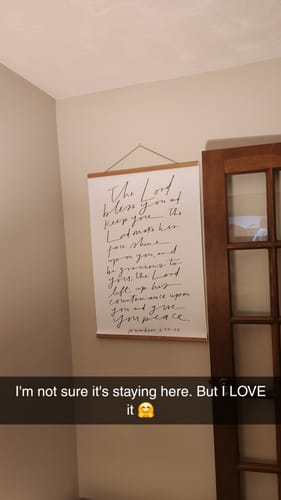 The Lord
bless you and
keep you the
Lord make his
face shine
upon you, and
be gracious to
you, the Lord
lift up his
countenance upon
you and give
you peace.
Numbers 6:24-26
I'm not sure it's staying here. But I LOVE
it 🤗